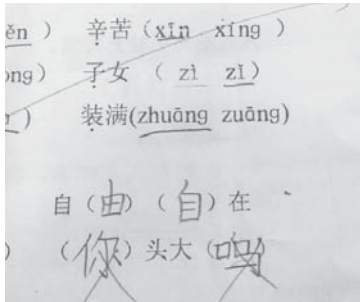 ěn ) 辛苦 (xīn xíng )
ong ) 子女 ( zì zǐ )
) 装满(zhuāng zuāng)
自 (由) (自) 在
) (你) 头大 (鸣)